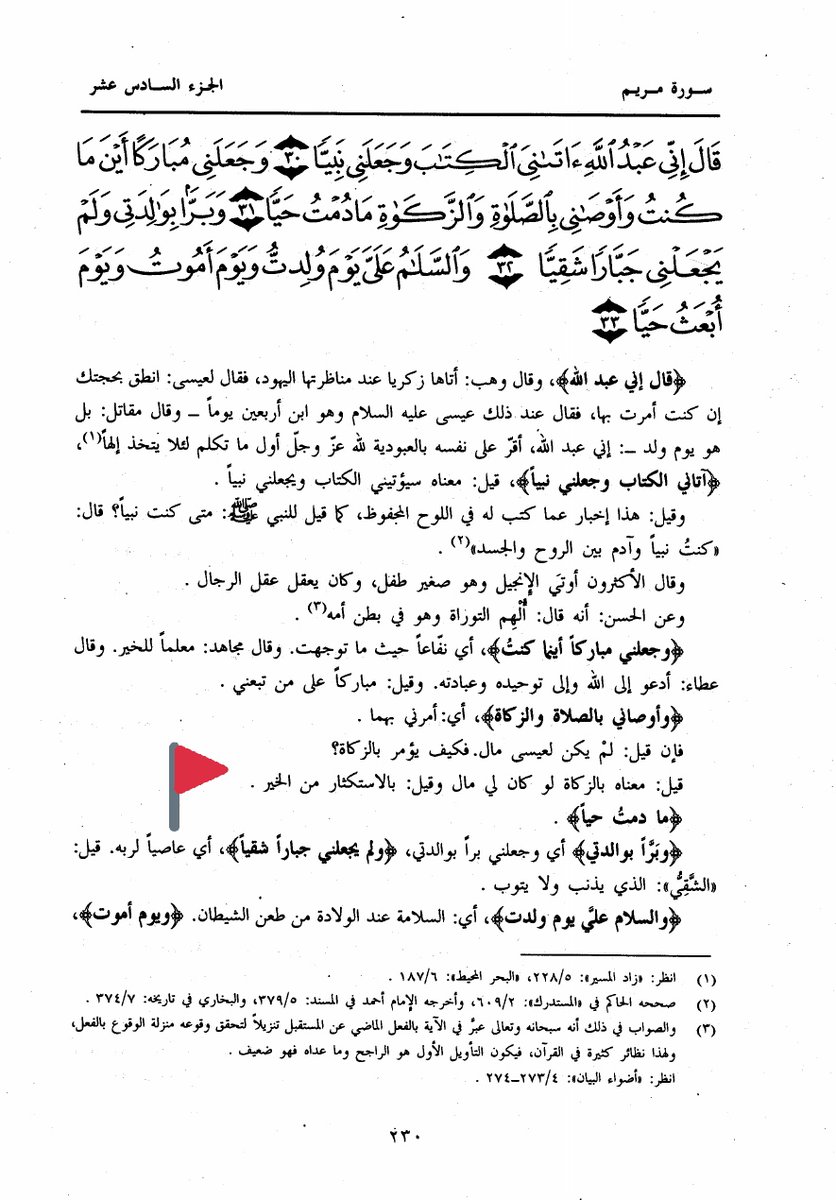 سـورة مـريـم
الجـزء السـادس عشـر
قَالَ إِنِّي عَبْدُ ٱللَّهِ ءَاتَىٰنِيَ ٱلْكِتَٰبَ وَجَعَلَنِي نَبِيًّا ٣٠ وَجَعَلَنِي مُبَارَكًا أَيْنَ مَا
كُنتُ وَأَوْصَٰنِي بِٱلصَّلَوٰةِ وَٱلزَّكَوٰةِ مَا دُمْتُ حَيًّا ٣١ وَبَرًّۢا بِوَٰلِدَتِي وَلَمْ
يَجْعَلْنِي جَبَّارًا شَقِيًّا ٣٢ وَٱلسَّلَٰمُ عَلَىَّ يَوْمَ وُلِدتُّ وَيَوْمَ أَمُوتُ وَيَوْمَ
أُبْعَثُ حَيًّا ٣٣
﴿قال إني عبد الله﴾، وقال وهب: أتاها زكريا عند مناظرتها اليهود، فقال لعيسى: انطق بحجتك
إن كنت أمرت بها، فقال عند ذلك عيسى عليه السلام وهو ابن أربعين يوماً ــ وقال مقاتل: بل
هو يوم ولد ــ: إني عبد الله، أقرّ على نفسه بالعبودية لله عزّ وجلّ أول ما تكلم لئلا يتخذ إلهاً(١)،
﴿آتاني الكتاب وجعلني نبياً﴾، قيل: معناه سيؤتيني الكتاب ويجعلني نبياً .
وقيل: هذا إخبار عما كتب له في اللوح المحفوظ، كما قيل للنبي ﷺ: متى كنت نبياً؟ قال:
«كنتُ نبياً وآدم بين الروح والجسد»(٢) .
وقال الأكثرون أوتيَ الإنجيل وهو صغير طفل، وكان يعقل عقل الرجال .
وعن الحسن: أنه قال: أُلْهِم التوراة وهو في بطن أمه(٣) .
﴿وجعلني مباركاً أينما كنتُ﴾، أي نفّاعاً حيث ما توجهت. وقال مجاهد: معلماً للخير. وقال
عطاء: أدعو إلى الله وإلى توحيده وعبادته. وقيل: مباركاً على من تبعني .
﴿وأوصاني بالصلاة والزكاة﴾، أي: أمرني بهما .
فإن قيل: لمْ يكن لعيسى مال. فكيف يؤمر بالزكاة؟
قيل: معناه بالزكاة لو كان لي مال وقيل: بالاستكثار من الخير .
﴿ما دمتُ حياً﴾ .
﴿وبَرَّاً بوالدتي﴾ أي وجعلني براً بوالدتي، ﴿ولم يجعلني جباراً شقياً﴾، أي عاصياً لربه. قيل:
«الشَّقِيُّ»: الذي يذنب ولا يتوب .
﴿والسلام عليَّ يوم ولدت﴾، أي: السلامة عند الولادة من طعن الشيطان. ﴿ويوم أموت﴾،
(١) انظر: «زاد المسير»: ٢٢٨/٥، «البحر المحيط»: ١٨٧/٦ .
(٢) صححه الحاكم في «المستدرك»: ٦٠٩/٢، وأخرجه الإمام أحمد في المسند: ٣٧٩/٥، والبخاري في تاريخه: ٣٧٤/٧ .
(٣) والصواب في ذلك أنه سبحانه وتعالى عبرَّ في الآية بالفعل الماضي عن المستقبل تنزيلاً لتحقق وقوعه منزلة الوقوع بالفعل،
ولهذا نظائر كثيرة في القرآن، فيكون التأويل الأول هو الراجح وما عداه فهو ضعيف .
انظر: «أضواء البيان»: ٢٧٣/٤ــ٢٧٤ .
٢٣٠